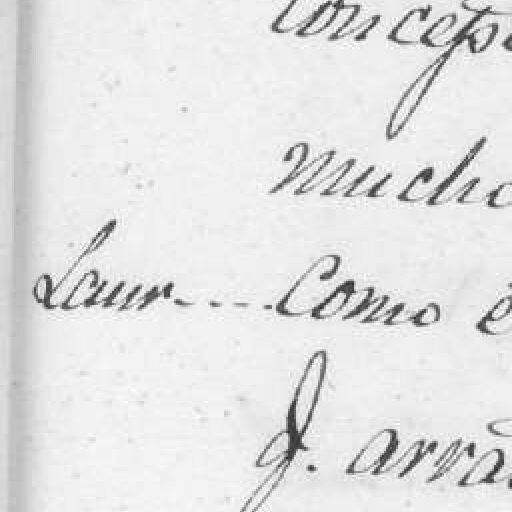 concep
mucho
Laur.... Como e
J. arra